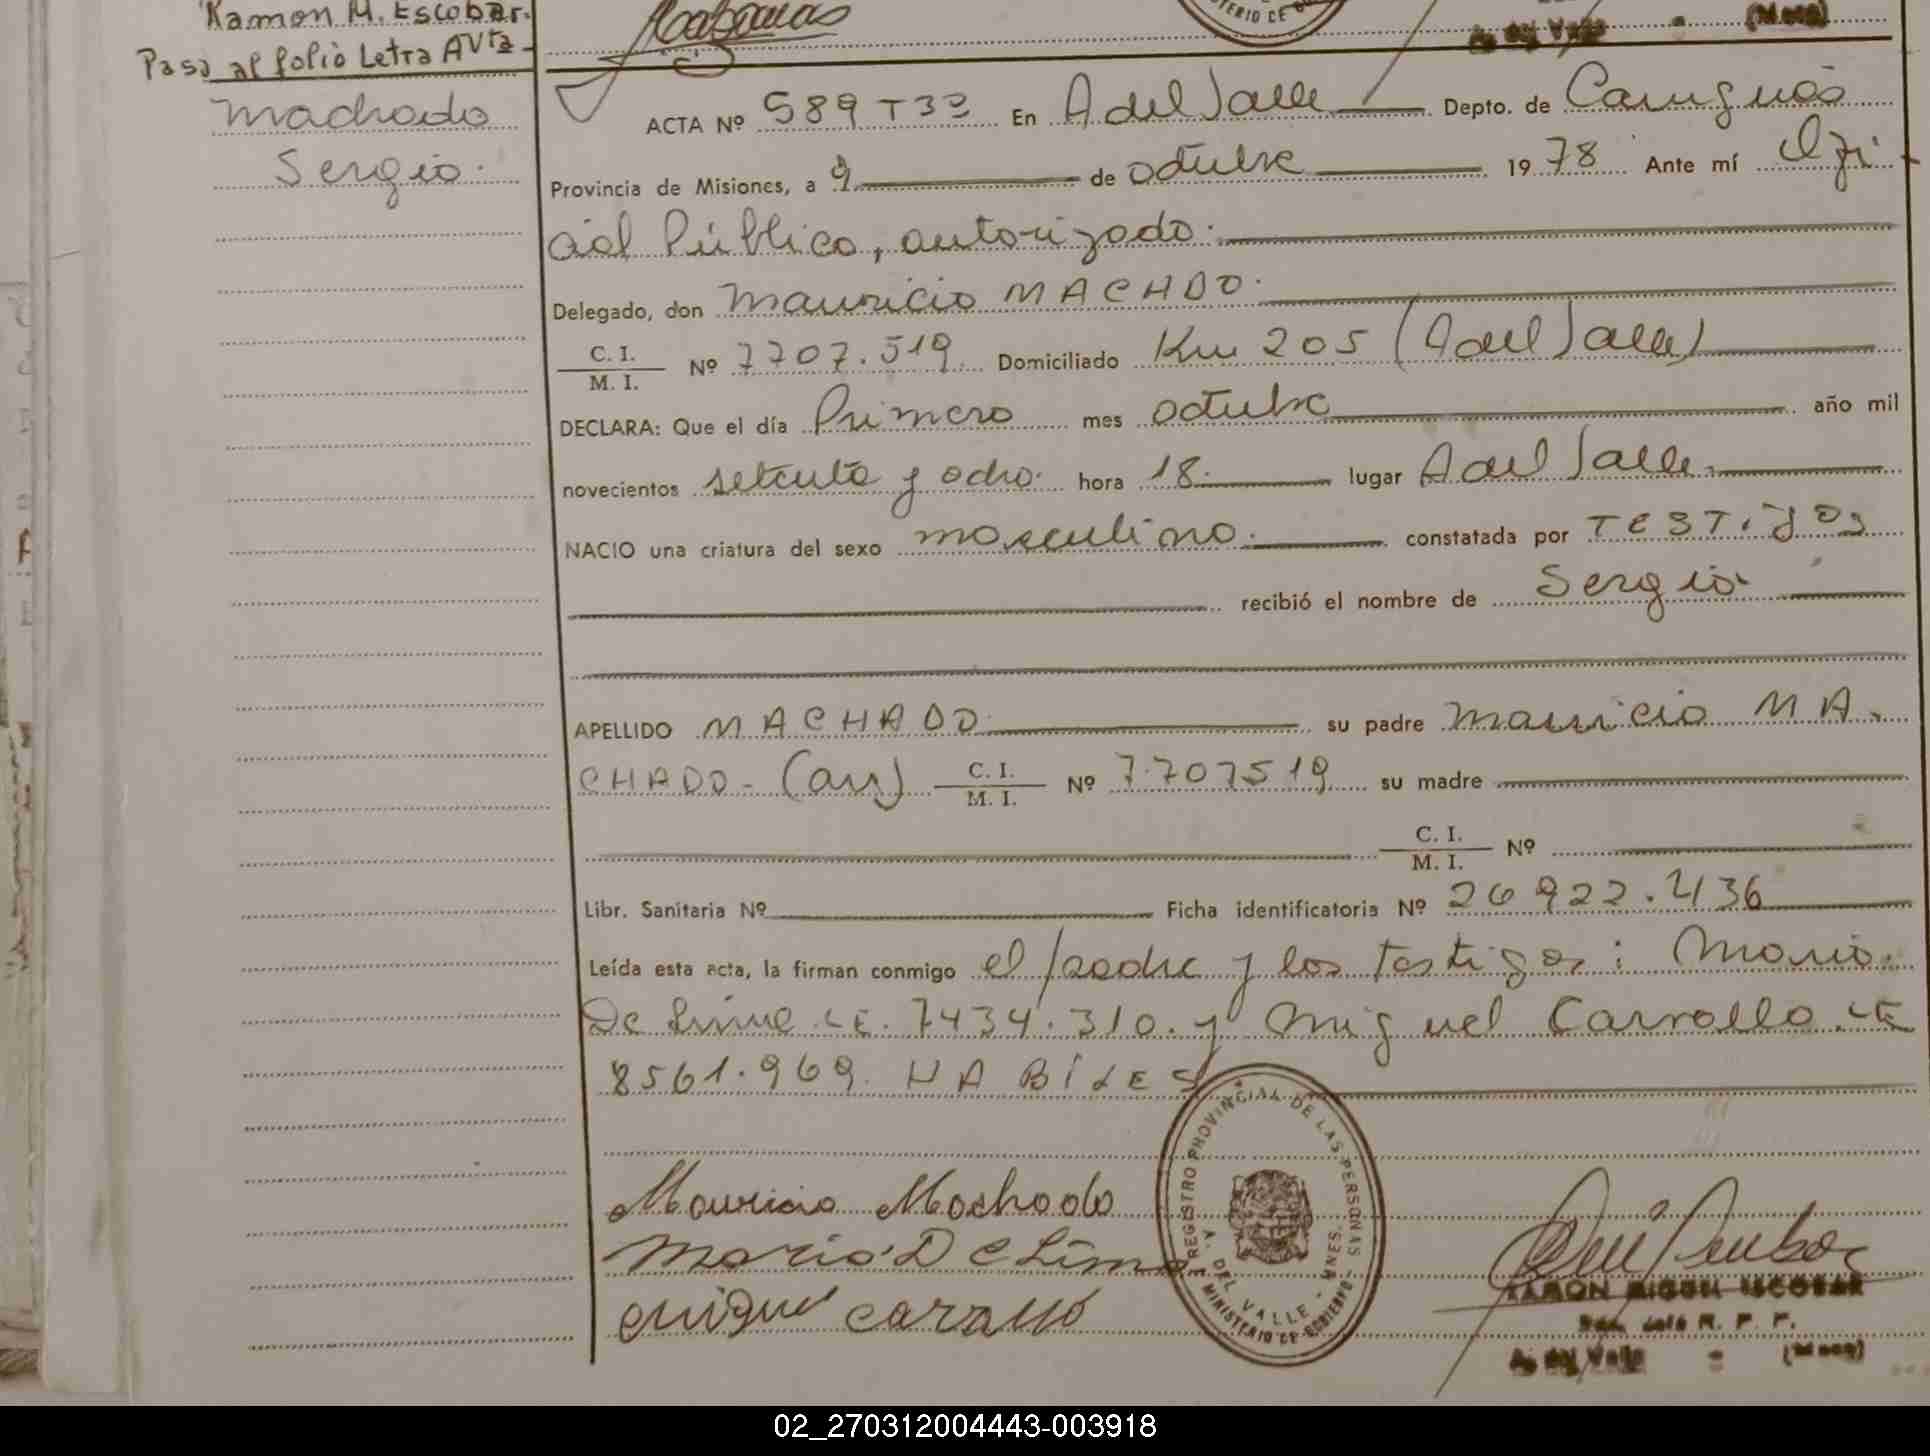 Ramon M. Escobar.
Pasa al folio Letra A Vta
Machado
Sergio.
ACTA Nº 589 T3º En A del Valle Depto. de Cainguás
Provincia de Misiones, a 9 de octubre 1978 Ante mí Ofi
cial Público, autorizado.
Delegado, don Mauricio MACHDO.
C. I.
M. I. Nº 7707.519 Domiciliado Km 205 (A del Valle)
DECLARA: Que el día Primero mes octubre año mil
novecientos setenta y ocho. hora 18. lugar A del Valle.
NACIO una criatura del sexo masculino. constatada por TESTigos
recibió el nombre de Sergio.
APELLIDO MACHADO su padre Mauricio MA
CHADO - (arg) C. I. M. I. Nº 7.707519 su madre
C. I.
M. I. Nº
Libr. Sanitaria Nº Ficha identificatoria Nº 26922.436
Leída esta acta, la firman conmigo el padre y los testigos: Mario.
De Lima LE. 7434.310. y Miguel Carvallo LE
8561.969. HABILES
REGISTRO PROVINCIAL DE LAS PERSONAS
A. DEL VALLE - MNES.
MINISTERIO DE GOBIERNO
Mauricio Machado
Mario D e Lima
Miguel Carvallo
RAMON MIGUEL ESCOBAR
A. del Valle - (Mnes)
02_270312004443-003918